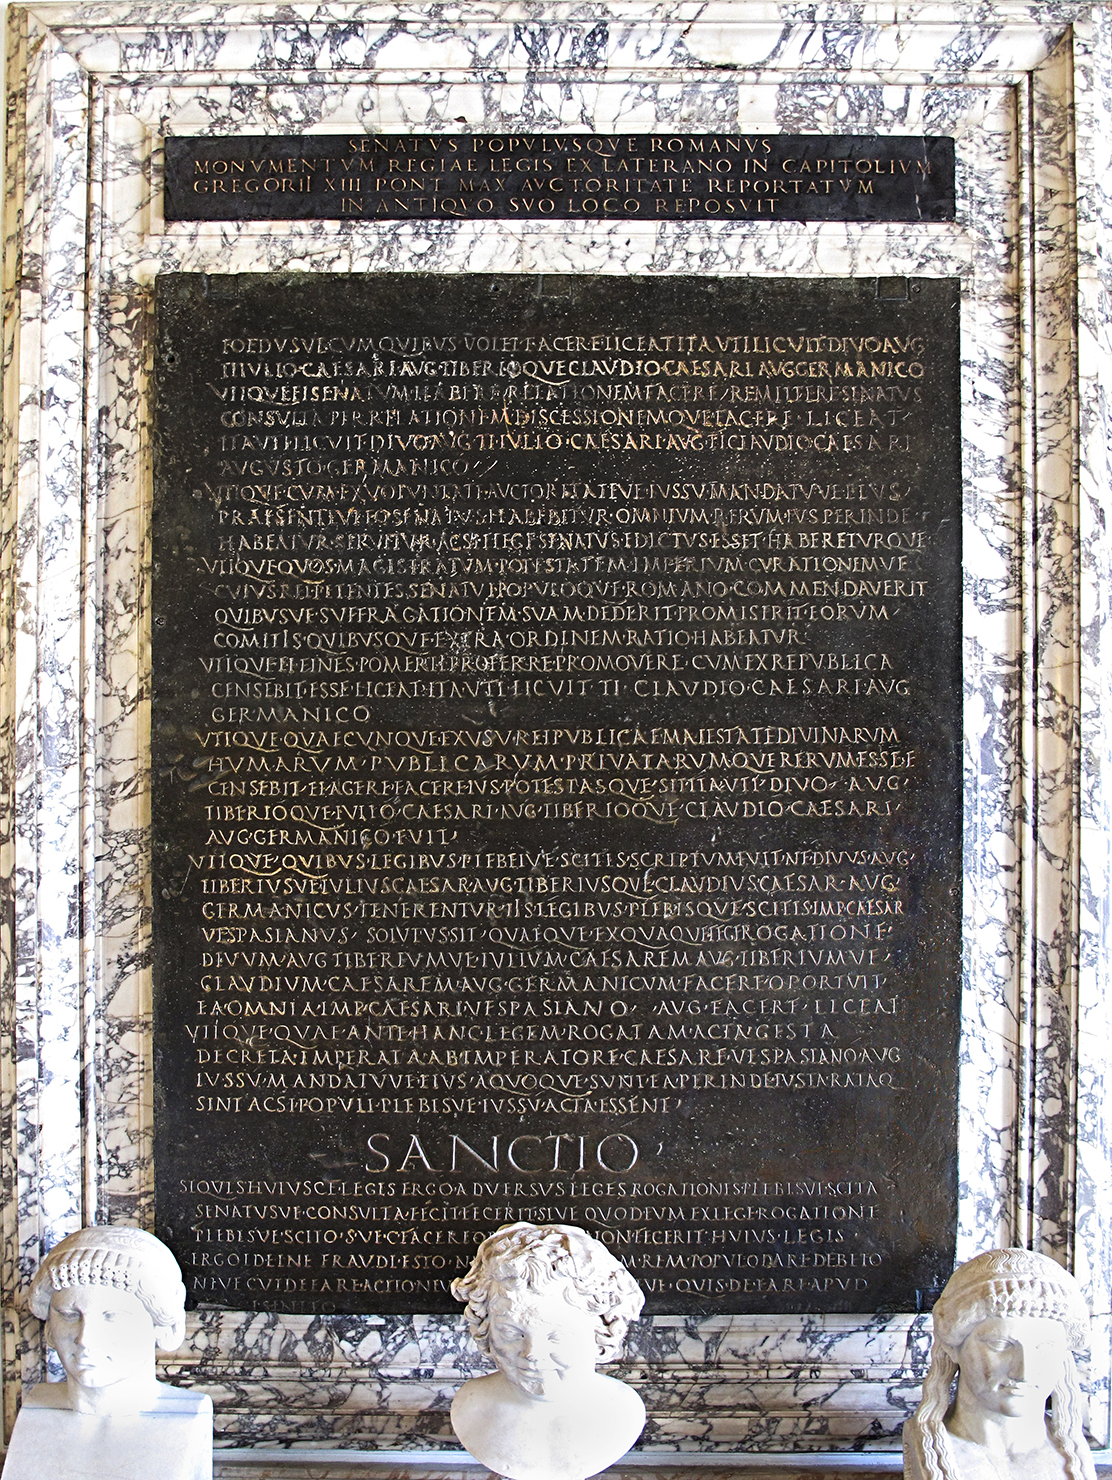 SENATVS POPVLVSQVE ROMANVS
MONVMENTVM REGIAE LEGIS EX LATERANO IN CAPITOLIVM
GREGORII XIII PONT MAX AVCTORITATE REPORTATVM
IN ANTIQVO SVO LOCO REPOSVIT
FOEDUSVE CUM QUIBUS VOLET FACERE LICEAT ITA UTI LICUIT DIVO AUG
TI IULIO CAESARI AUG TIBERIOQUE CLAUDIO CAESARI AUG GERMANICO
UTIQUE EI SENATUM HABERE RELATIONEM FACERE REMITTERE SENATUS
CONSULTA PER RELATIONEM DISCESSIONEMQUE FACERE LICEAT
ITA UTI LICUIT DIVO AUG TI IULIO CAESARI AUG TI CLAUDIO CAESARI
AUGUSTO GERMANICO
UTIQUE CUM EX VOLUNTATE AUCTORITATEVE IUSSU MANDATUVE EIUS
PRAESENTEVE EO SENATUS HABEBITUR OMNIUM RERUM IUS PERINDE
HABEATUR SERVETUR AC SI E LEGE SENATUS EDICTUS ESSET HABERETURQUE
UTIQUE QUOS MAGISTRATUM POTESTATEM IMPERIUM CURATIONEMVE
CUIUS REI PETENTES SENATUI POPULOQUE ROMANO COMMENDAVERIT
QUIBUSVE SUFFRAGATIONEM SUAM DEDERIT PROMISERIT EORUM
COMITIS QUIBUSQUE EXTRA ORDINEM RATIO HABEATUR
UTIQUE EI FINES POMERII PROFERRE PROMOVERE CUM EX REPUBLICA
CENSEBIT ESSE LICEAT ITA UTI LICUIT TI CLAUDIO CAESARI AUG
GERMANICO
UTIQUE QUAECUNQUE EX USU REIPUBLICAE MAIESTATE DIVINARUM
HUMARUM PUBLICARUM PRIVATARUMQUE RERUM ESSE E
CENSEBIT EI AGERE FACERE IUS POTESTASQUE SIT ITA UTI DIVO AUG
TIBERIOQUE IULIO CAESARI AUG TIBERIOQUE CLAUDIO CAESARI
AUG GERMANICO FUIT
UTIQUE QUIBUS LEGIBUS PLEBEIVE SCITIS SCRIPTUM FUIT NE DIVUS AUG
TIBERIUSVE IULIUS CAESAR AUG TIBERIUSQUE CLAUDIUS CAESAR AUG
GERMANICUS TENERENTUR IIS LEGIBUS PLEBISQUE SCITIS IMP CAESAR
VESPASIANUS SOLUTUS SIT QUAEQUE EX QUAQUE LEGE ROGATIONE
DIVUM AUG TIBERIUMVE IULIUM CAESAREM AUG TIBERIUMVE
CLAUDIUM CAESAREM AUG GERMANICUM FACERE OPORTUIT
EA OMNIA IMP CAESARI VESPASIANO AUG FACERE LICEAT
UTIQUE QUAE ANTE HANC LEGEM ROGATAM ACTA GESTA
DECRETA IMPERATA AB IMPERATORE CAESARE VESPASIANO AUG
IUSSU MANDATUVE EIUS A QUOQUE SUNT EA PERINDE IUSTA RATAQ
SINT AC SI POPULI PLEBISVE IUSSU ACTA ESSENT
SANCTIO
SI QUIS HUIUSCE LEGIS ERGO ADVERSUS LEGES ROGATIONES PLEBISVE SCITA
SENATUSVE CONSULTA FECIT FECERIT SIVE QUOD EUM EX LEGE ROGATIONE
PLEBISVE SCITO S VE C FACERE NON FECERIT HUIUS LEGIS
ERGO ID EI NE FRAUDI ESTO REM POPULO DARE DEBETO
NEVE CUI DE EA RE ACTIO QUIS DE EA RE APUD